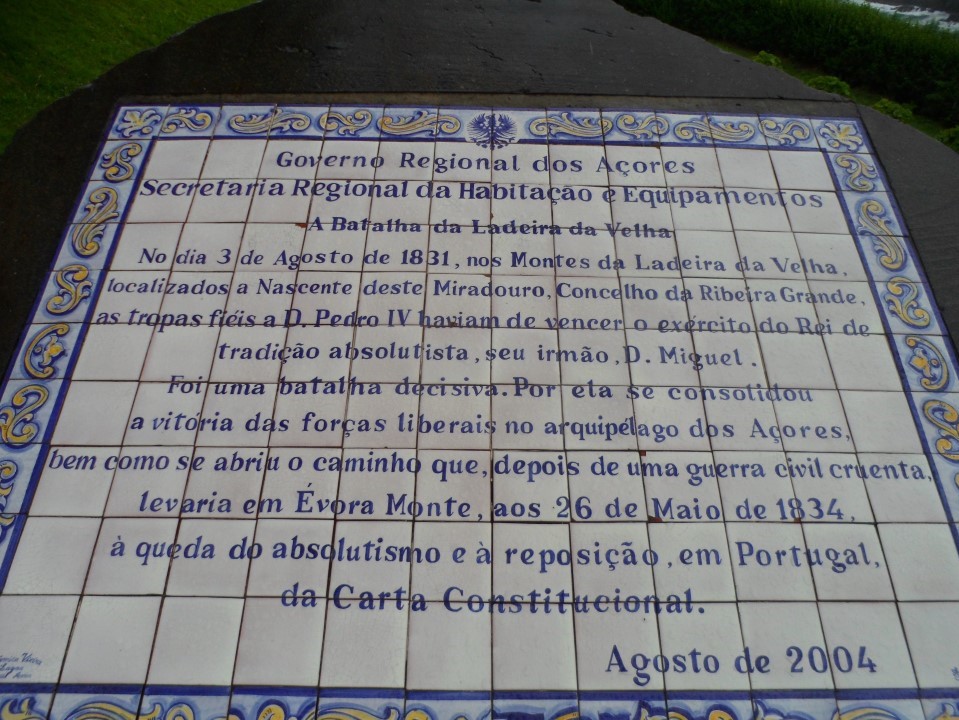 Governo Regional dos Açores
Secretaria Regional da Habitação e Equipamentos
A Batalha da Ladeira da Velha
No dia 3 de Agosto de 1831, nos Montes da Ladeira da Velha,
localizados a Nascente deste Miradouro, Concelho da Ribeira Grande,
as tropas fiéis a D. Pedro IV haviam de vencer o exército do Rei de
tradição absolutista, seu irmão, D. Miguel.
Foi uma batalha decisiva. Por ela se consolidou
a vitória das forças liberais no arquipélago dos Açores,
bem como se abriu o caminho que, depois de uma guerra civil cruenta,
levaria em Évora Monte, aos 26 de Maio de 1834,
à queda do absolutismo e à reposição, em Portugal,
da Carta Constitucional.
Agosto de 2004